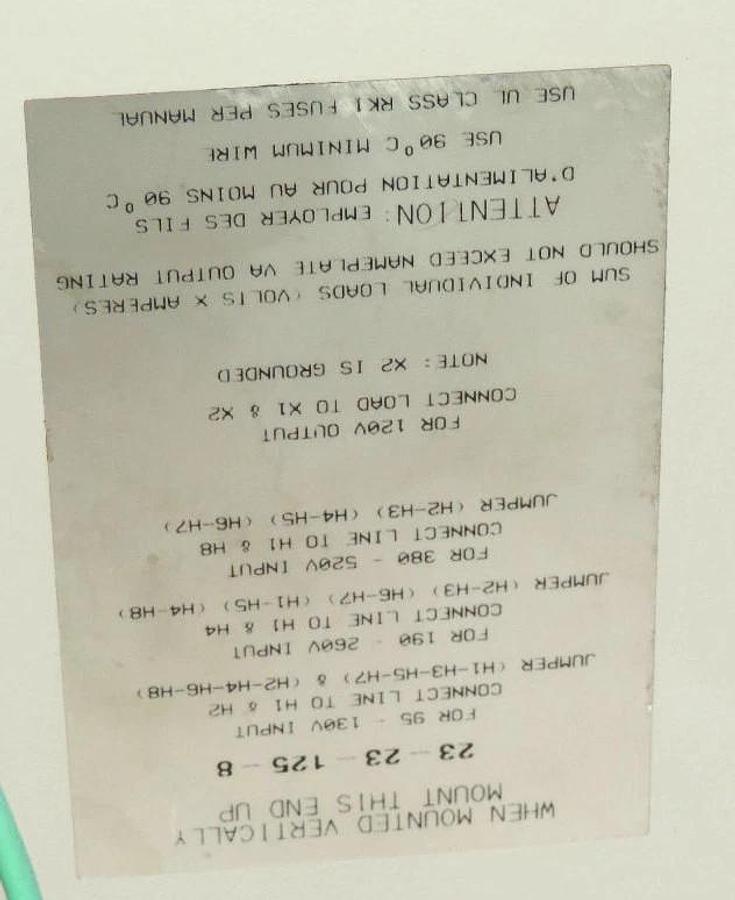 WHEN MOUNTED VERTICALLY
MOUNT THIS END UP
23-23-125-8
FOR 95 - 130V INPUT
CONNECT LINE TO H1 & H2
JUMPER (H1-H3-H5-H7) & (H2-H4-H6-H8)
FOR 190 - 260V INPUT
CONNECT LINE TO H1 & H4
JUMPER (H2-H3) (H6-H7) (H1-H5) (H4-H8)
FOR 380 - 520V INPUT
CONNECT LINE TO H1 & H8
JUMPER (H2-H3) (H4-H5) (H6-H7)
FOR 120V OUTPUT
CONNECT LOAD TO X1 & X2
NOTE: X2 IS GROUNDED
SUM OF INDIVIDUAL LOADS (VOLTS X AMPERES)
SHOULD NOT EXCEED NAMEPLATE VA OUTPUT RATING
ATTENTION: EMPLOYER DES FILS
D'ALIMENTATION POUR AU MOINS 90°C
USE 90°C MINIMUM WIRE
USE UL CLASS RK1 FUSES PER MANUAL